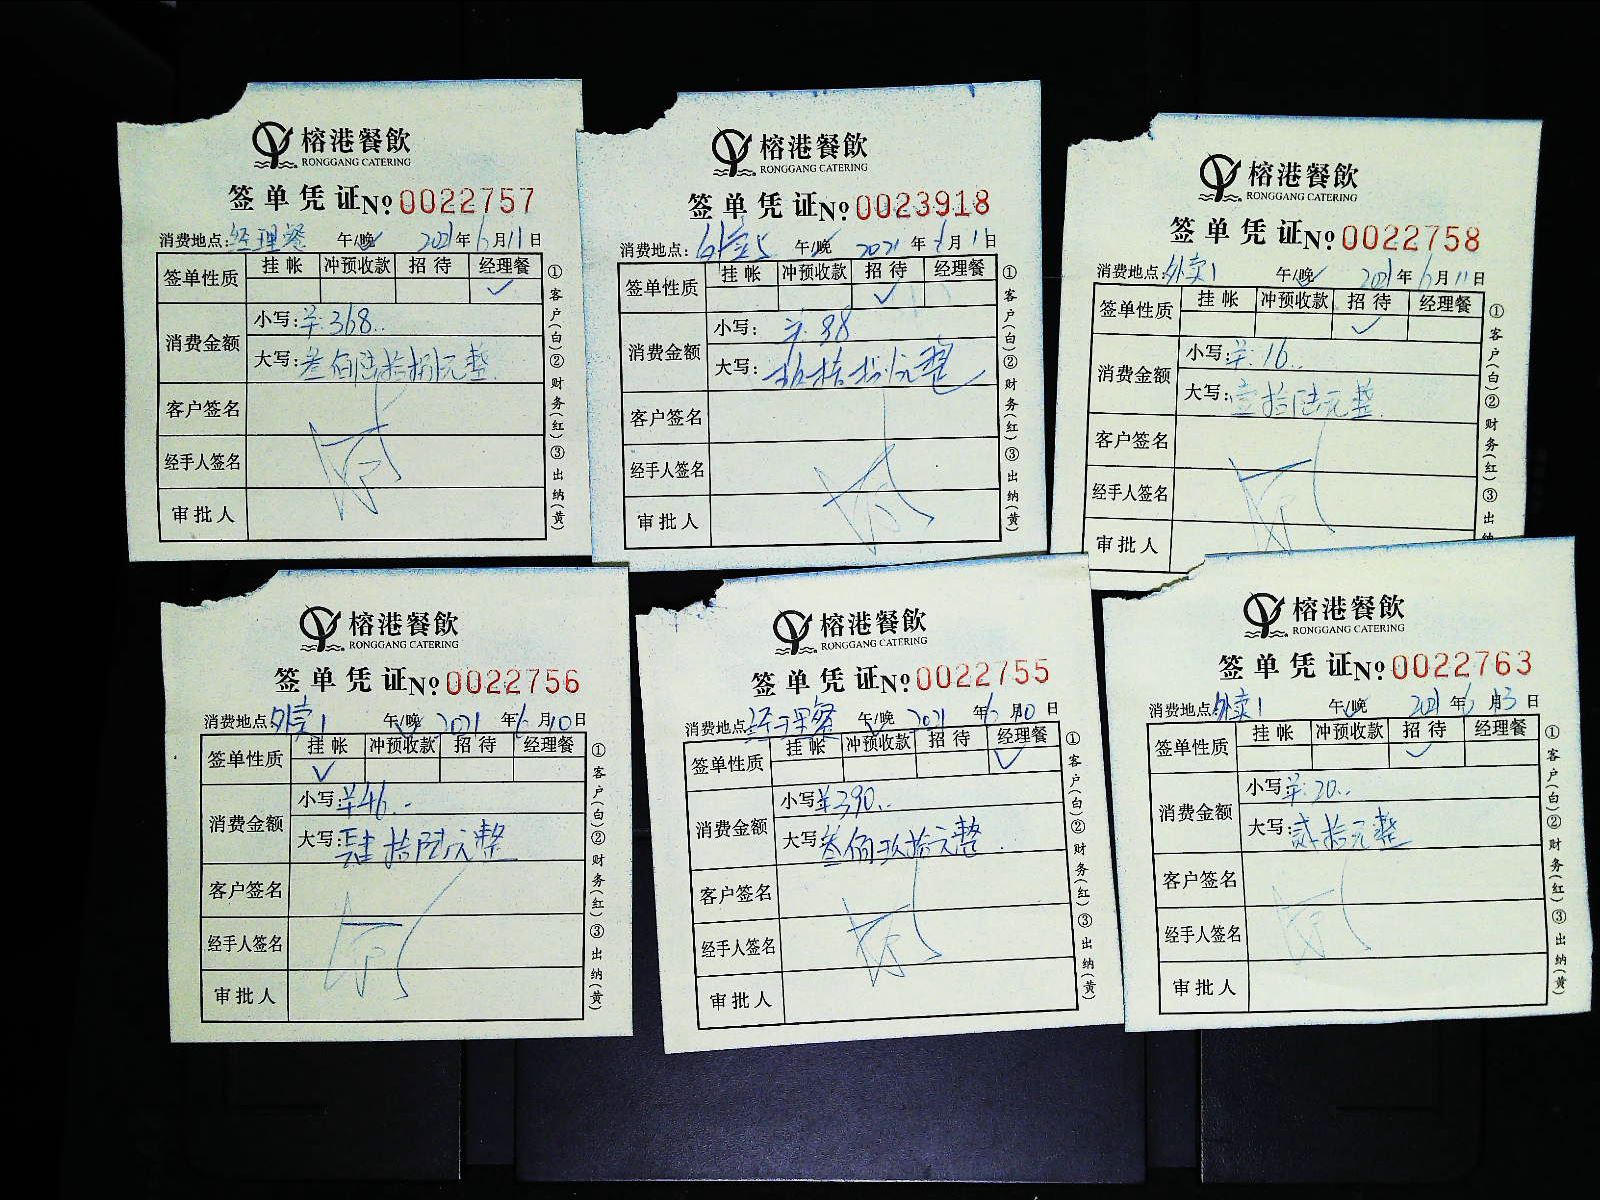 榕港餐飲
RONGGANG CATERING
签单凭证 No 0022757
消费地点: 经理餐 午/晚 2021年6月11日
签单性质 挂帐 冲预收款 招待 经理餐
✓
消费金额 小写: ¥:368..
大写: 叁佰陆拾捌元整
客户签名
经手人签名
审批人
①客户(白)②财务(红)③出纳(黄)
榕港餐飲
RONGGANG CATERING
签单凭证 No 0023918
消费地点: 外卖5 午/晚 2021年6月11日
签单性质 挂帐 冲预收款 招待 经理餐
✓
消费金额 小写: ¥:88
大写: 捌拾捌元整
客户签名
经手人签名
审批人
①客户(白)②财务(红)③出纳(黄)
榕港餐飲
RONGGANG CATERING
签单凭证 No 0022758
消费地点: 外卖1 午/晚 2021年6月11日
签单性质 挂帐 冲预收款 招待 经理餐
✓
消费金额 小写: ¥:16..
大写: 壹拾陆元整
客户签名
经手人签名
审批人
①客户(白)②财务(红)③出纳
榕港餐飲
RONGGANG CATERING
签单凭证 No 0022756
消费地点 外卖1 午/晚 2021年6月10日
签单性质 挂帐 冲预收款 招待 经理餐
✓
消费金额 小写: ¥46.-
大写: 肆拾陆元整
客户签名
经手人签名
审批人
①客户(白)②财务(红)③出纳(黄)
榕港餐飲
RONGGANG CATERING
签单凭证 No 0022755
消费地点 经理餐 午/晚 2021年6月10日
签单性质 挂帐 冲预收款 招待 经理餐
✓
消费金额 小写 ¥390..
大写: 叁佰玖拾元整
客户签名
经手人签名
审批人
①客户(白)②财务(红)③出纳(黄)
榕港餐飲
RONGGANG CATERING
签单凭证 No 0022763
消费地点: 外卖1 午/晚 2021年6月13日
签单性质 挂帐 冲预收款 招待 经理餐
✓
消费金额 小写 ¥:20..
大写: 贰拾元整
客户签名
经手人签名
审批人
①客户(白)②财务(红)③出纳(黄)